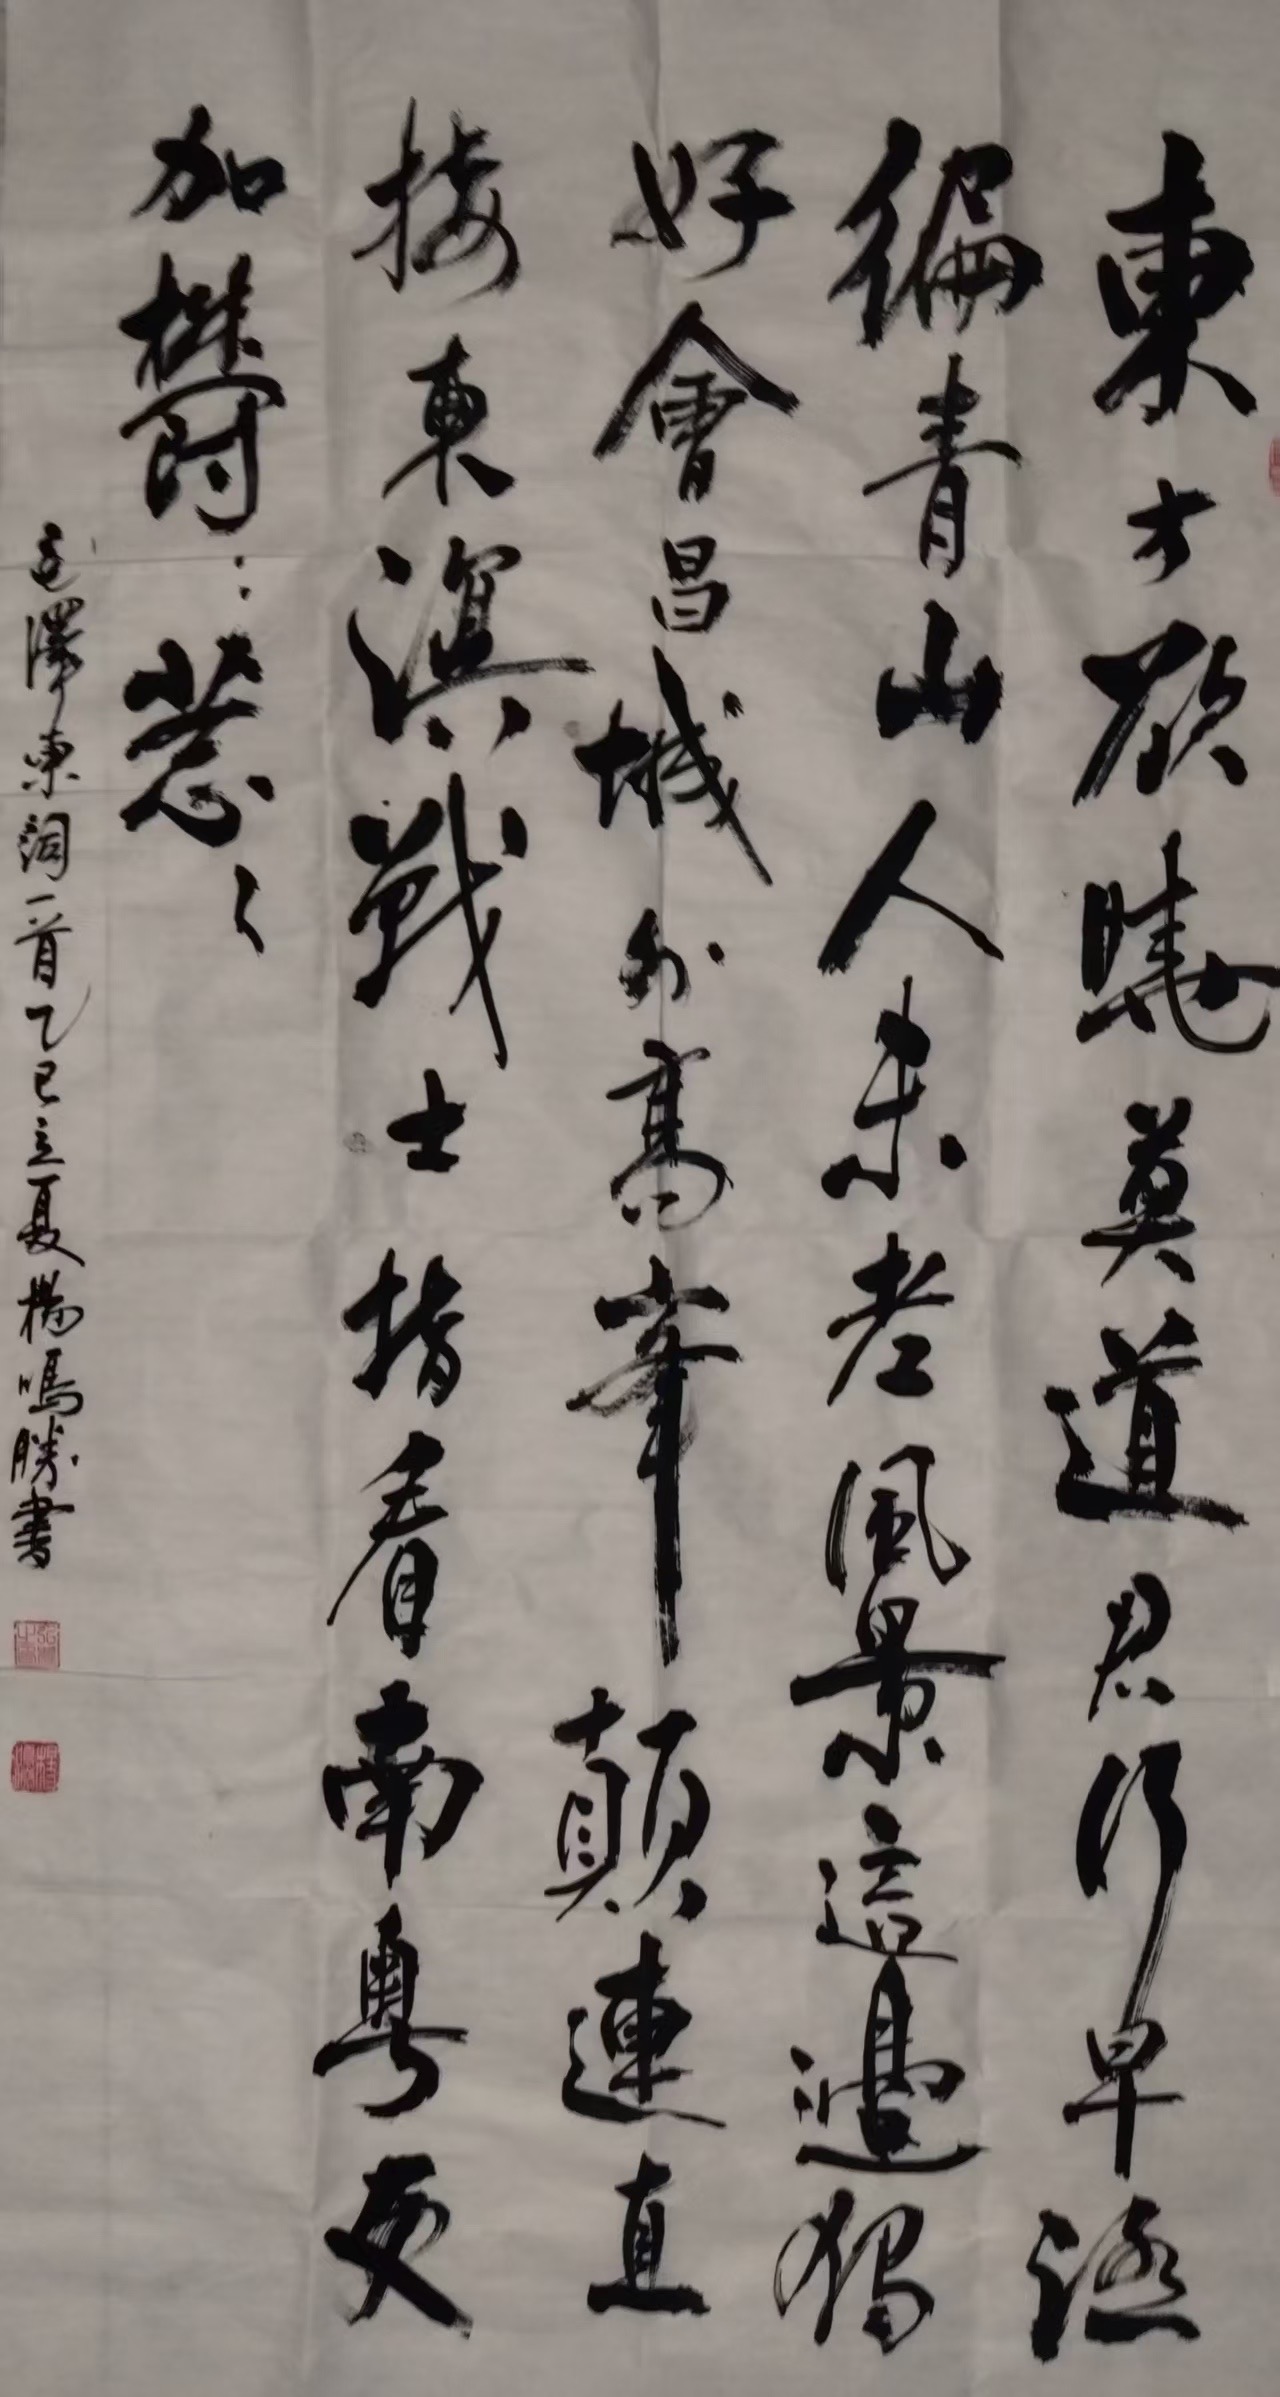 東方欲曉莫道君行早踏
徧青山人未老風景這邊獨
好會昌城外高峯顛連直
接東溟戰士指看南粵更
加欝々葱々
毛澤東詞一首乙巳立夏楊鳴勝書